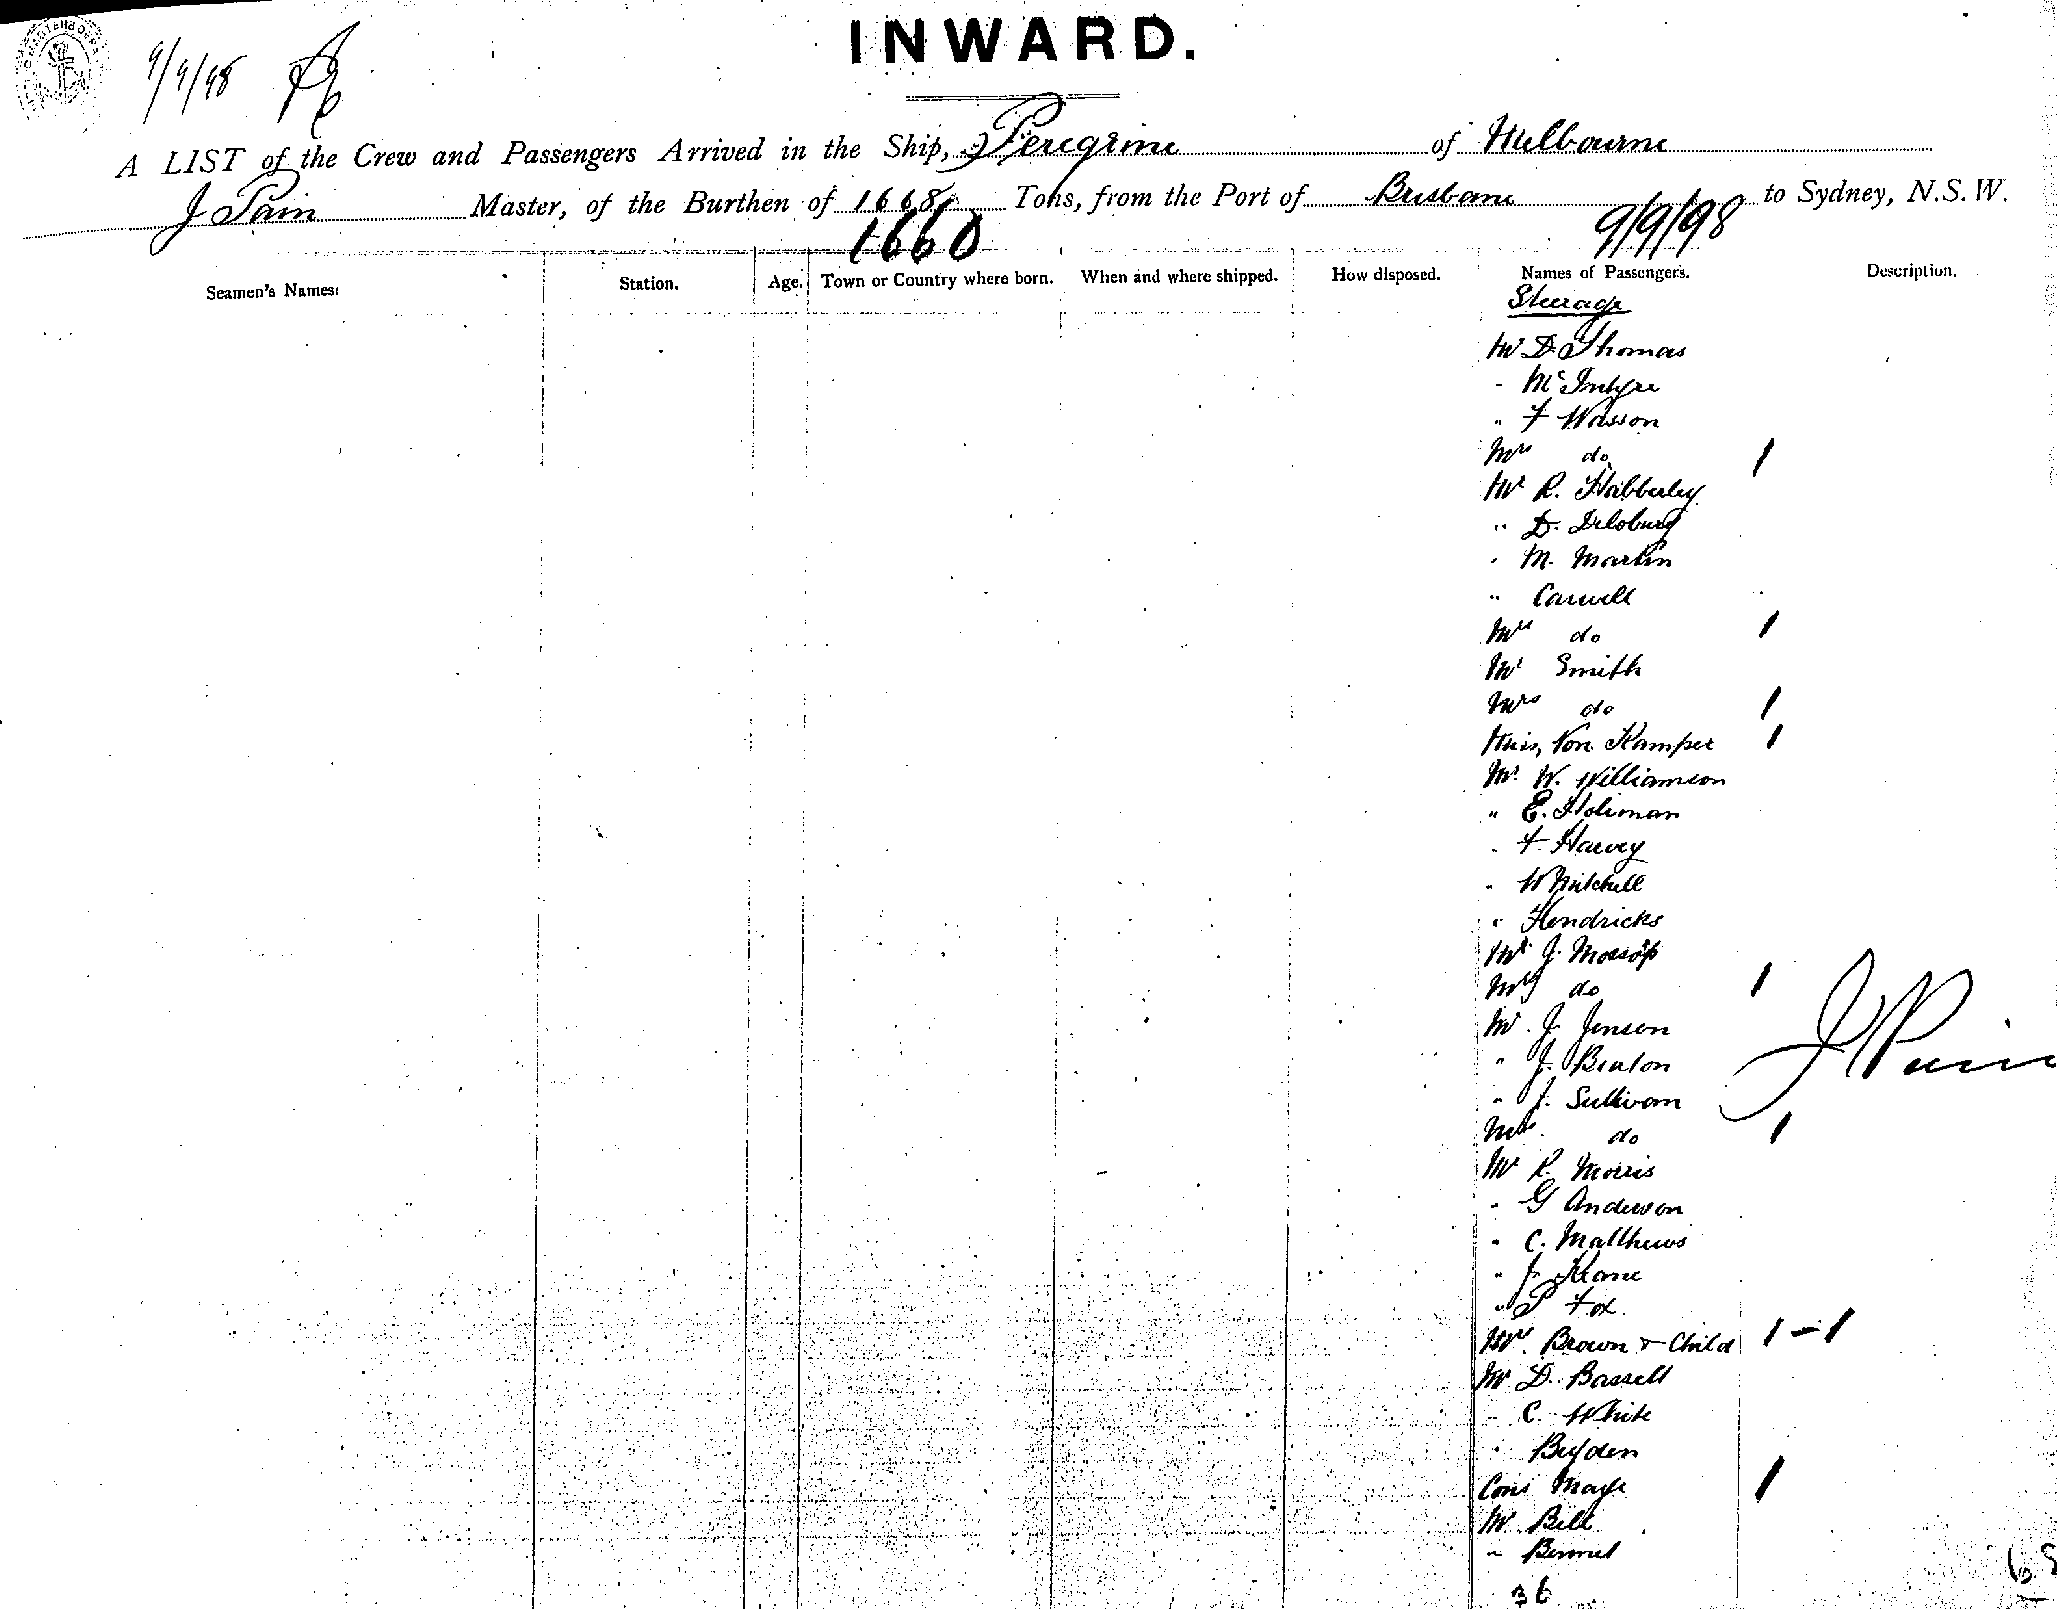 INWARD.
9/9/98
A LIST of the Crew and Passengers Arrived in the Ship, Peregrine of Melbourne
J Pain Master, of the Burthen of 1668 Tons, from the Port of Brisbane to Sydney, N.S.W.
1660 9/9/98
Seamen's Names: Station. Age. Town or Country where born. When and where shipped. How disposed. Names of Passengers. Description.
Steerage
Mr D Thomas
- McIntyre
" F Wasson
Mrs do 1
Mr R. Habberley
" D.
" M. Martin
" Carwell
Mrs do 1
Mr Smith
Mrs do 1
Miss Von Kamper 1
Mr W. Williamson
" E. Holiman
" F Harvey
" W Mitchell
" Hendricks
Mr J. Mossop
Mrs do 1
Mr J. Jenson
" J. Beaton
" J. Sullivan
Mrs do 1
J Pain
Mr R. Morris
" G Anderson
" C. Matthews
" J. Kane
" P Fox
Mrs Brown & Child 1 - 1
Mr D. Bassett
" C. White
" Buyden
Cons Mage 1
Mr Bell
" Bennet
36